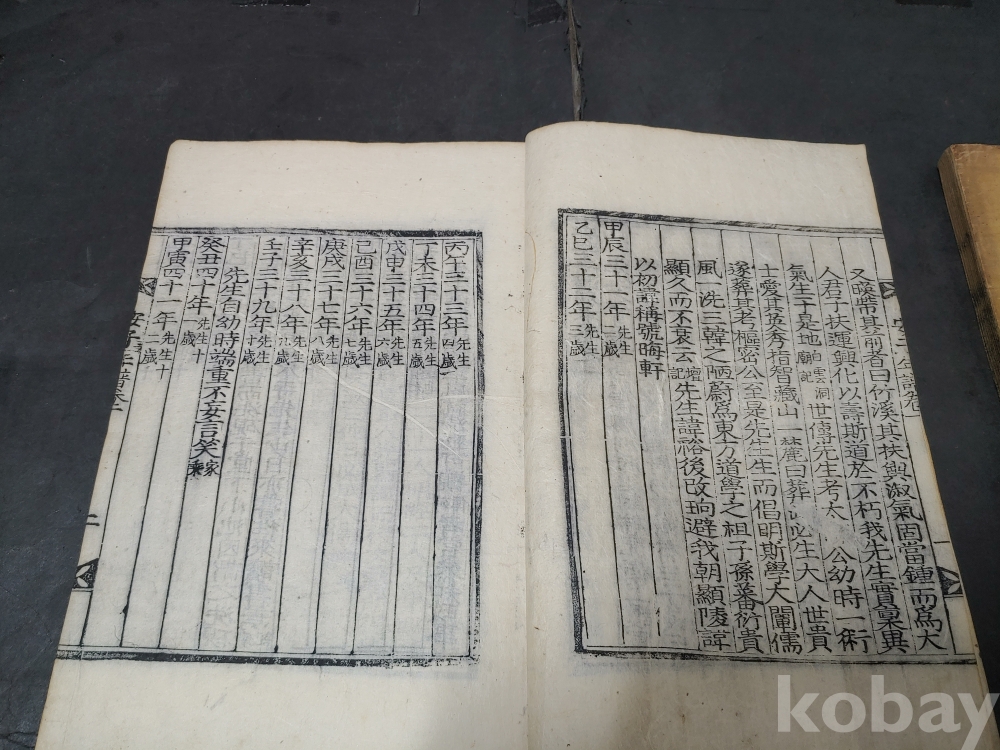 又暎帶其前者曰竹溪其扶輿淑氣固當鍾而爲大
人君子扶運興化以壽斯道於不朽我先生實稟與
氣生于是地廟記 雲洞 世傳先生考太 公幼時一術
士愛其英秀指智藏山一麓曰葬 必生大人世貴
遂葬其考樞密公至是先生生而倡明斯學大闡儒
風一洗三韓之陋蔚爲東方道學之祖子孫蕃衍貴
顯久而不衰云壇記先生諱裕後改珦避我朝顯陵諱
以初諱稱號晦軒
甲辰三十一年先生二歲
乙巳三十二年先生三歲
丙午三十三年先生四歲
丁未三十四年先生五歲
戊申三十五年先生六歲
己酉三十六年先生七歲
庚戌三十七年先生八歲
辛亥三十八年先生九歲
壬子三十九年先生十歲
先生自幼時端重不妄言笑家乘
癸丑四十年先生十 歲
甲寅四十一年先生十 歲
二
kobay